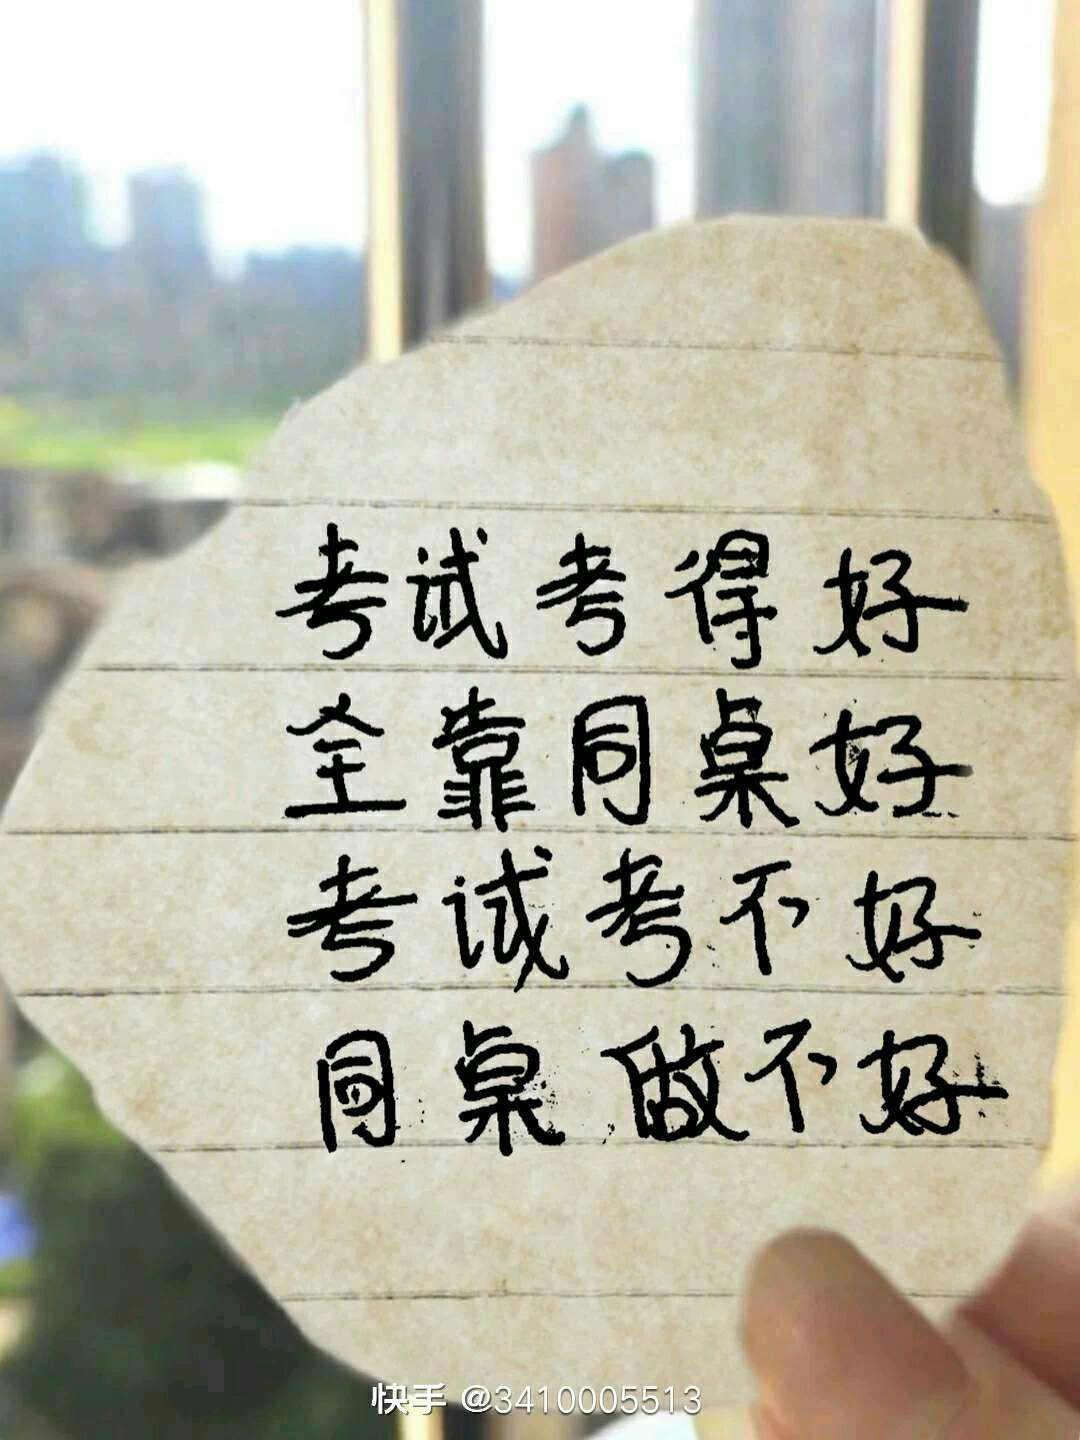 考试考得好
全靠同桌好
考试考不好
同桌做不好
快手 @3410005513